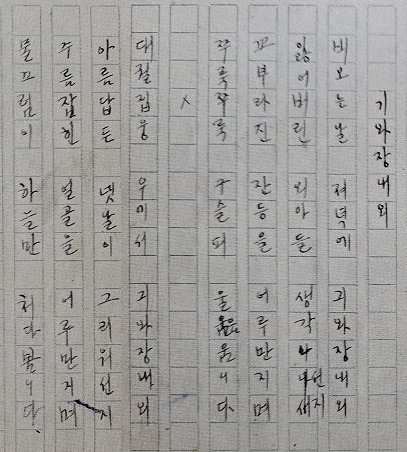 기와장내외
비오는날 저녁에 기와장내외
잃어버린 외아들 생각나선지
꼬부라진 잔등을 어루만지며
쭈룩쭈룩 구슬피 울음움니다
×
대궐집웅 우에서 기와장내외
아름답든 녯날이 그리워선지
주름잡힌 얼골을 어루만지며
물끄럼이 하늘만 처다봄니다.